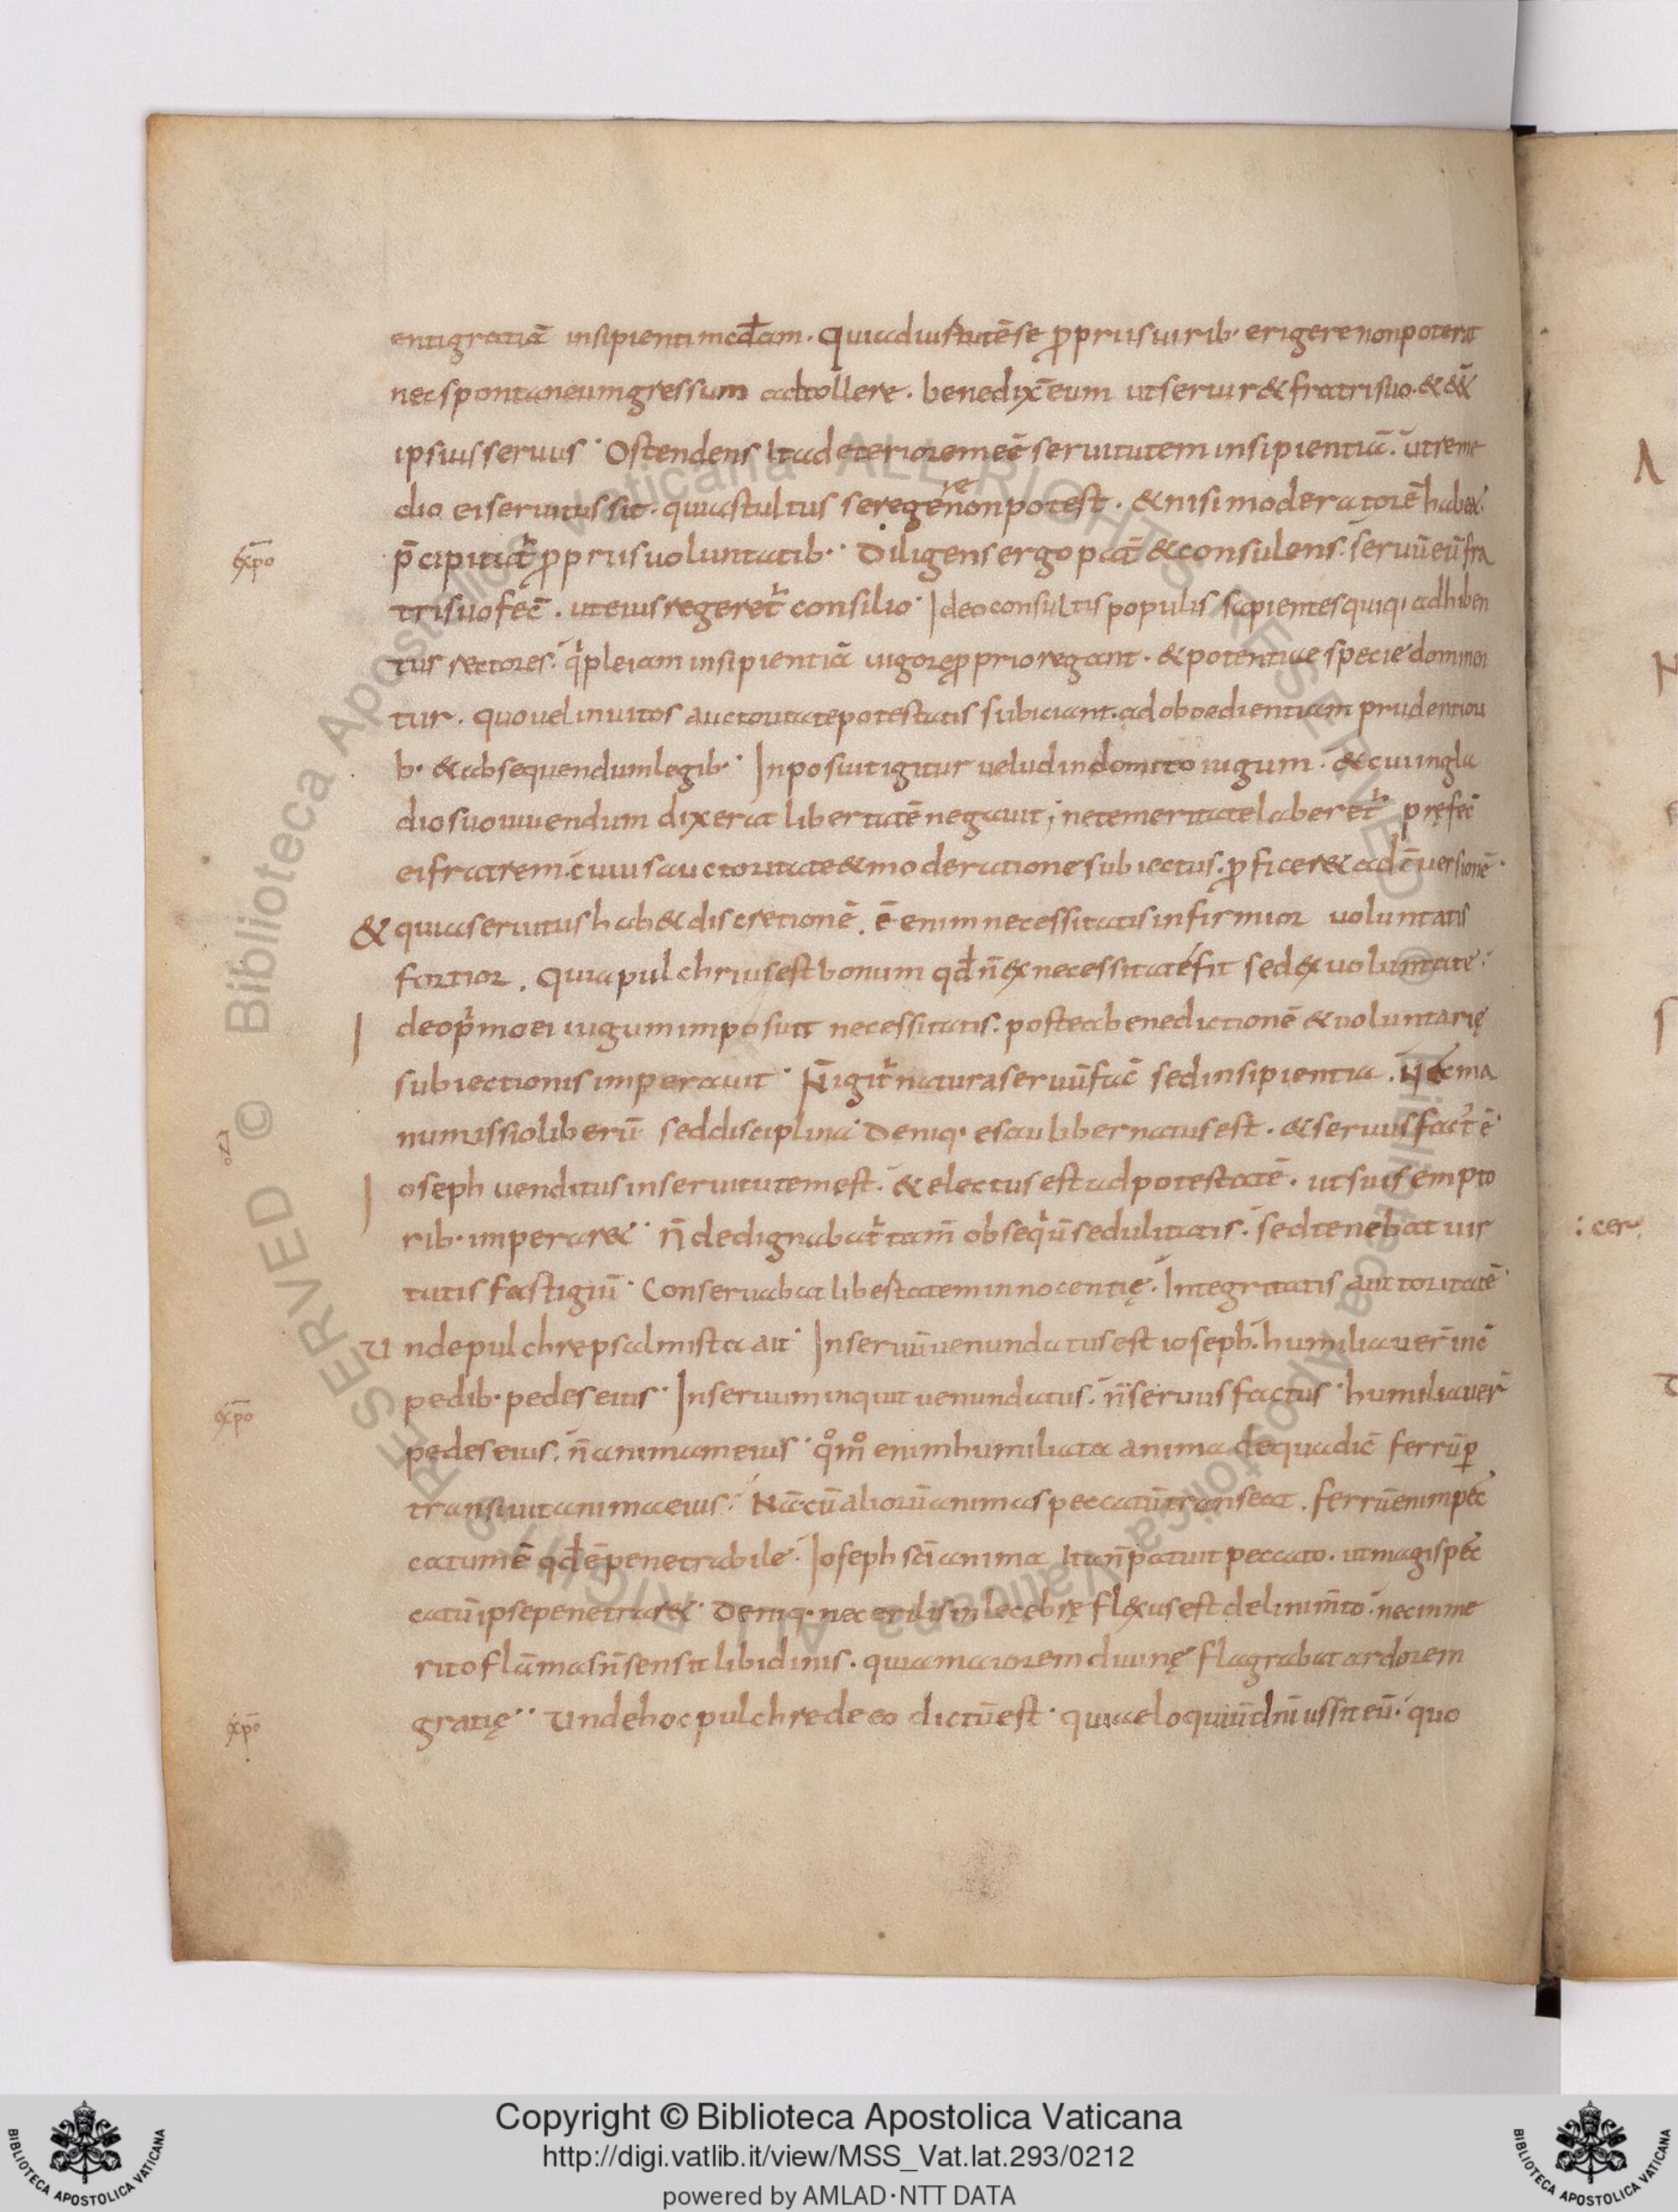 entigratiā insipienti medełam. Quia ad uirtutē se ꝓpriis uirib· erigere non poterat
nec spontaneum gressum adtollere. benedix̄ eum ut seruir& fratri suo. & ess&
ipsius seruus· Ostendens ita deteriorem ēē seruitutem insipientiā. ut reme
dio ei seruitus sit. quia stultus se regere non potest. & nisi moderatorē habeat
p̄cipitat᷑ ꝓpriis uoluntatib·· Diligens ergo pat̄ & consulens. seruū eū fra
tri suo fec̄. ut eius regeret᷑ consilio· Ideo consultis populis sapientes quiq· adhiben
tur rectores. q̄ plebiam insipientiā uigore ꝓprio regant. & potentiae specie dominen
tur. quo uel inuitos auctoritate potestatis subiciant. ad oboedientiam prudentiori
b· & obsequendum legib·· Inposuit igitur uelud indomito iugum. & cui in gla
dio suo uiuendum dixerat libertatē negauit; ne temeritate laberet᷑ pręfec̄
ei fratrem. cuius auctoritate & moderatione subiectus. ꝓficer& ad c̄uersionē.
& quia seruitus hab& discretionē. ē enim necessitatis infirmior uoluntatis
fortior. Quia pulchrius est bonum qđ n̄ ex necessitate fit sed ex uoluntate·
I deo p̄mo ei iugum imposuit necessitatis. postea benedictionē & uoluntarię
subiectionis imperauit· N̄ igit᷑ natura seruū fac̄ sed insipientia. nec ma
numissio liberū sed disciplina· Deniq· esau liber natus est. & seruus fact᷒ ē·
I oseph uenditus in seruitutem est. & electus est ad potestatē. ut suis empto
rib· imperar&·· n̄ dedignabat᷑ tam̄ obseq̄ū sedulitatis. sed tenebat uir
tutis fastigiū· Conseruabat libertatem innocentię. Integritatis auctoritatē·
U nde pulchre psalmista ait· In seruū uenundatus est ioseph. humiliauer̄ in c̄
pedib· pedes eius· In seruum inquit uenundatus. n̄ seruus factus· humiliauer̄
pedes eius. n̄ animam eius· q̊m̊ enim humiliata anima de qua dic̄ ferrū ꝑ
transiuit anima eius· Nā cū aliorū animas peccatū transeat. ferrū enim pec
catum ē qđ ē penetrabile· Ioseph sc̄i anima ita n̄ patuit peccato. ut magis pec
catū ipse penetrar&· Deniq· nec erilis inlecebrę flexus est delinim̄to. nec in me
rito flāmas n̄ sensit libidinis. quia maiorem diuinę flagrabat ardorem
gratię·· Unde hoc pulchre de eo dictū est· quia eloquiū dn̄i ussit eū. quo
xp̄o
xp̄o
xp̄o
: cer
Copyright © Biblioteca Apostolica Vaticana
http://digi.vatlib.it/view/MSS_Vat.lat.293/0212
powered by AMLAD·NTT DATA
BIBLIOTECA APOSTOLICA VATICANA
BIBLIOTECA APOSTOLICA VATICANA
© Biblioteca Apostolica Vaticana ALL RIGHTS RESERVED
© Biblioteca Apostolica Vaticana ALL RIGHTS RESERVED